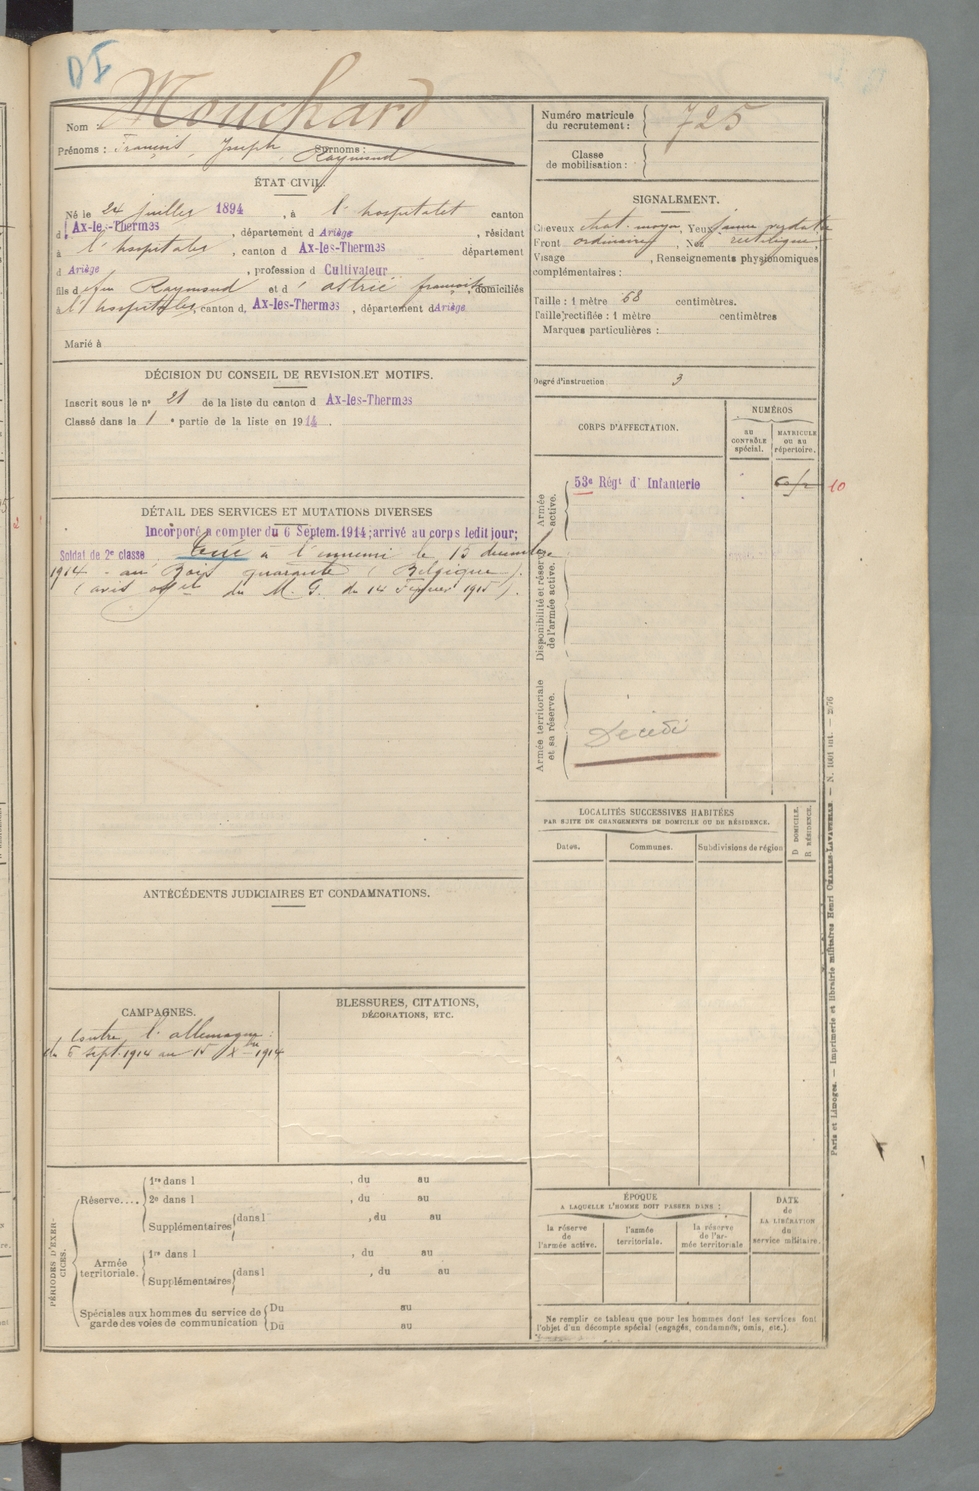 DF
Nom : Mouchard
Prénoms : François, Joseph, Raymond Surnoms :
Numéro matricule du recrutement : 725
Classe de mobilisation :
ÉTAT CIVIL.
Né le 24 juillet 1894, à l'hospitalet canton
d' Ax-les-Thermes, département d Ariège, résidant
à l'hospitalet, canton d Ax-les-Thermes département
d Ariège, profession d Cultivateur
fils d feu Raymond et d' astrié françoise, domiciliés
à l'hospitalet, canton d, Ax-les-Thermes, département d Ariège
Marié à
SIGNALEMENT.
Cheveux chat. moyen, Yeux jaune verdatre
Front ordinaire, Nez rectiligne,
Visage , Renseignements physionomiques
complémentaires :
Taille : 1 mètre 68 centimètres.
Taille rectifiée : 1 mètre centimètres
Marques particulières :
Degré d'instruction 3
DÉCISION DU CONSEIL DE REVISION ET MOTIFS.
Inscrit sous le n° 21 de la liste du canton d Ax-les-Thermes
Classé dans la 1e partie de la liste en 1914.
DÉTAIL DES SERVICES ET MUTATIONS DIVERSES
Incorporé a compter du 6 Septem. 1914; arrivé au corps ledit jour;
Soldat de 2e classe Tué à l'ennemi le 15 decembre
1914 - au Bois quarante (Belgique).
(avis off et du M. G. du 14 Fevrier 1915).
CORPS D'AFFECTATION.
NUMÉROS
AU CONTRÔLE spécial.
MATRICULE OU AU répertoire.
Armée active.
53e Régt d'Infanterie
10
Disponibilité et réserve de l'armée active.
Armée territoriale et sa réserve.
Décédé
LOCALITÉS SUCCESSIVES HABITÉES
PAR SUITE DE CHANGEMENTS DE DOMICILE OU DE RÉSIDENCE.
Dates.
Communes.
Subdivisions de région
D DOMICILE.
R RÉSIDENCE.
ANTÉCÉDENTS JUDICIAIRES ET CONDAMNATIONS.
CAMPAGNES.
Contre l'allemagne :
du 6 sept. 1914 au 15 Xbre 1914
BLESSURES, CITATIONS,
DÉCORATIONS, ETC.
PÉRIODES D'EXERCICES.
Réserve....
1re dans l , du au
2e dans l , du au
Supplémentaires dans l , du au
Armée territoriale.
1re dans l , du au
Supplémentaires dans l , du au
Spéciales aux hommes du service de garde des voies de communication
Du au
Du au
ÉPOQUE
A LAQUELLE L'HOMME DOIT PASSER DANS :
la réserve de l'armée active.
l'armée territoriale.
la réserve de l'armée territoriale
DATE de LA LIBÉRATION du service militaire.
Ne remplir ce tableau que pour les hommes dont les services font
l'objet d'un décompte spécial (engagés, condamnés, omis, etc.).
Paris et Limoges. — Imprimerie et librairie militaires Henri CHARLES-LAVAUZELLE. — N. 1001 int. — 2076